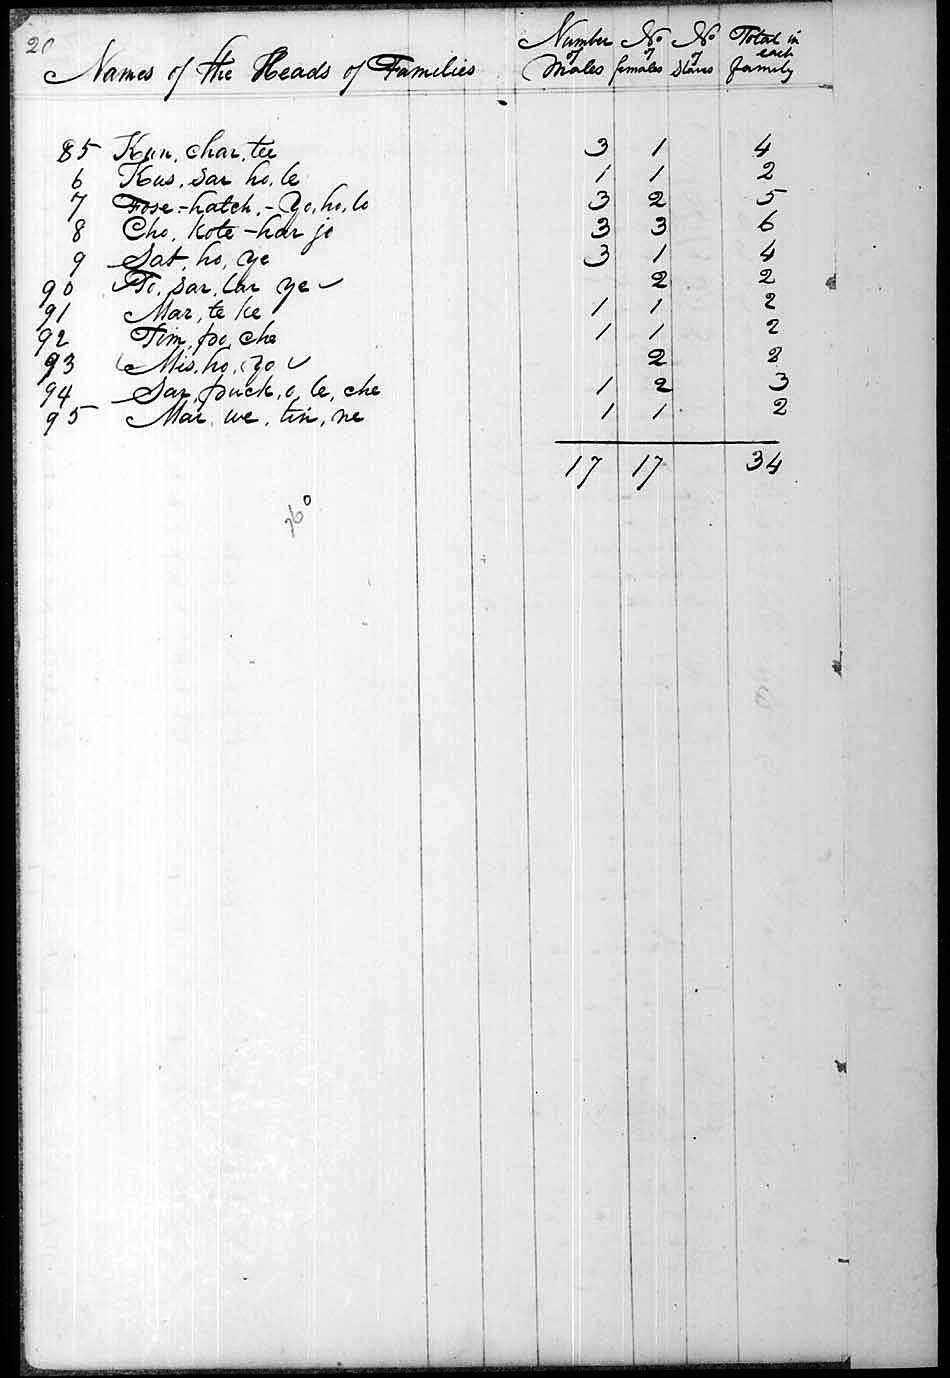 20
Names of the Heads of Families Number of Males No of females No of Slaves Total in each family
85 Kun, char, tee 3 1 4
6 Kus, sar ho, le 1 1 2
7 Fose-hatch,-Yo, ho, lo 3 2 5
8 Cho, Kote-har jo 3 3 6
9 Sat, ho, ye 3 1 4
90 To, sar, lar ye ✓ 2 2
91 Mar, te ke 1 1 2
92 Tim, po, che 1 1 2
93 Mis, ho, yo ✓ 2 2
94 Sar, puck, o, le, che 1 2 3
95 Mar, we, tin, ne 1 1 2
17 17 34